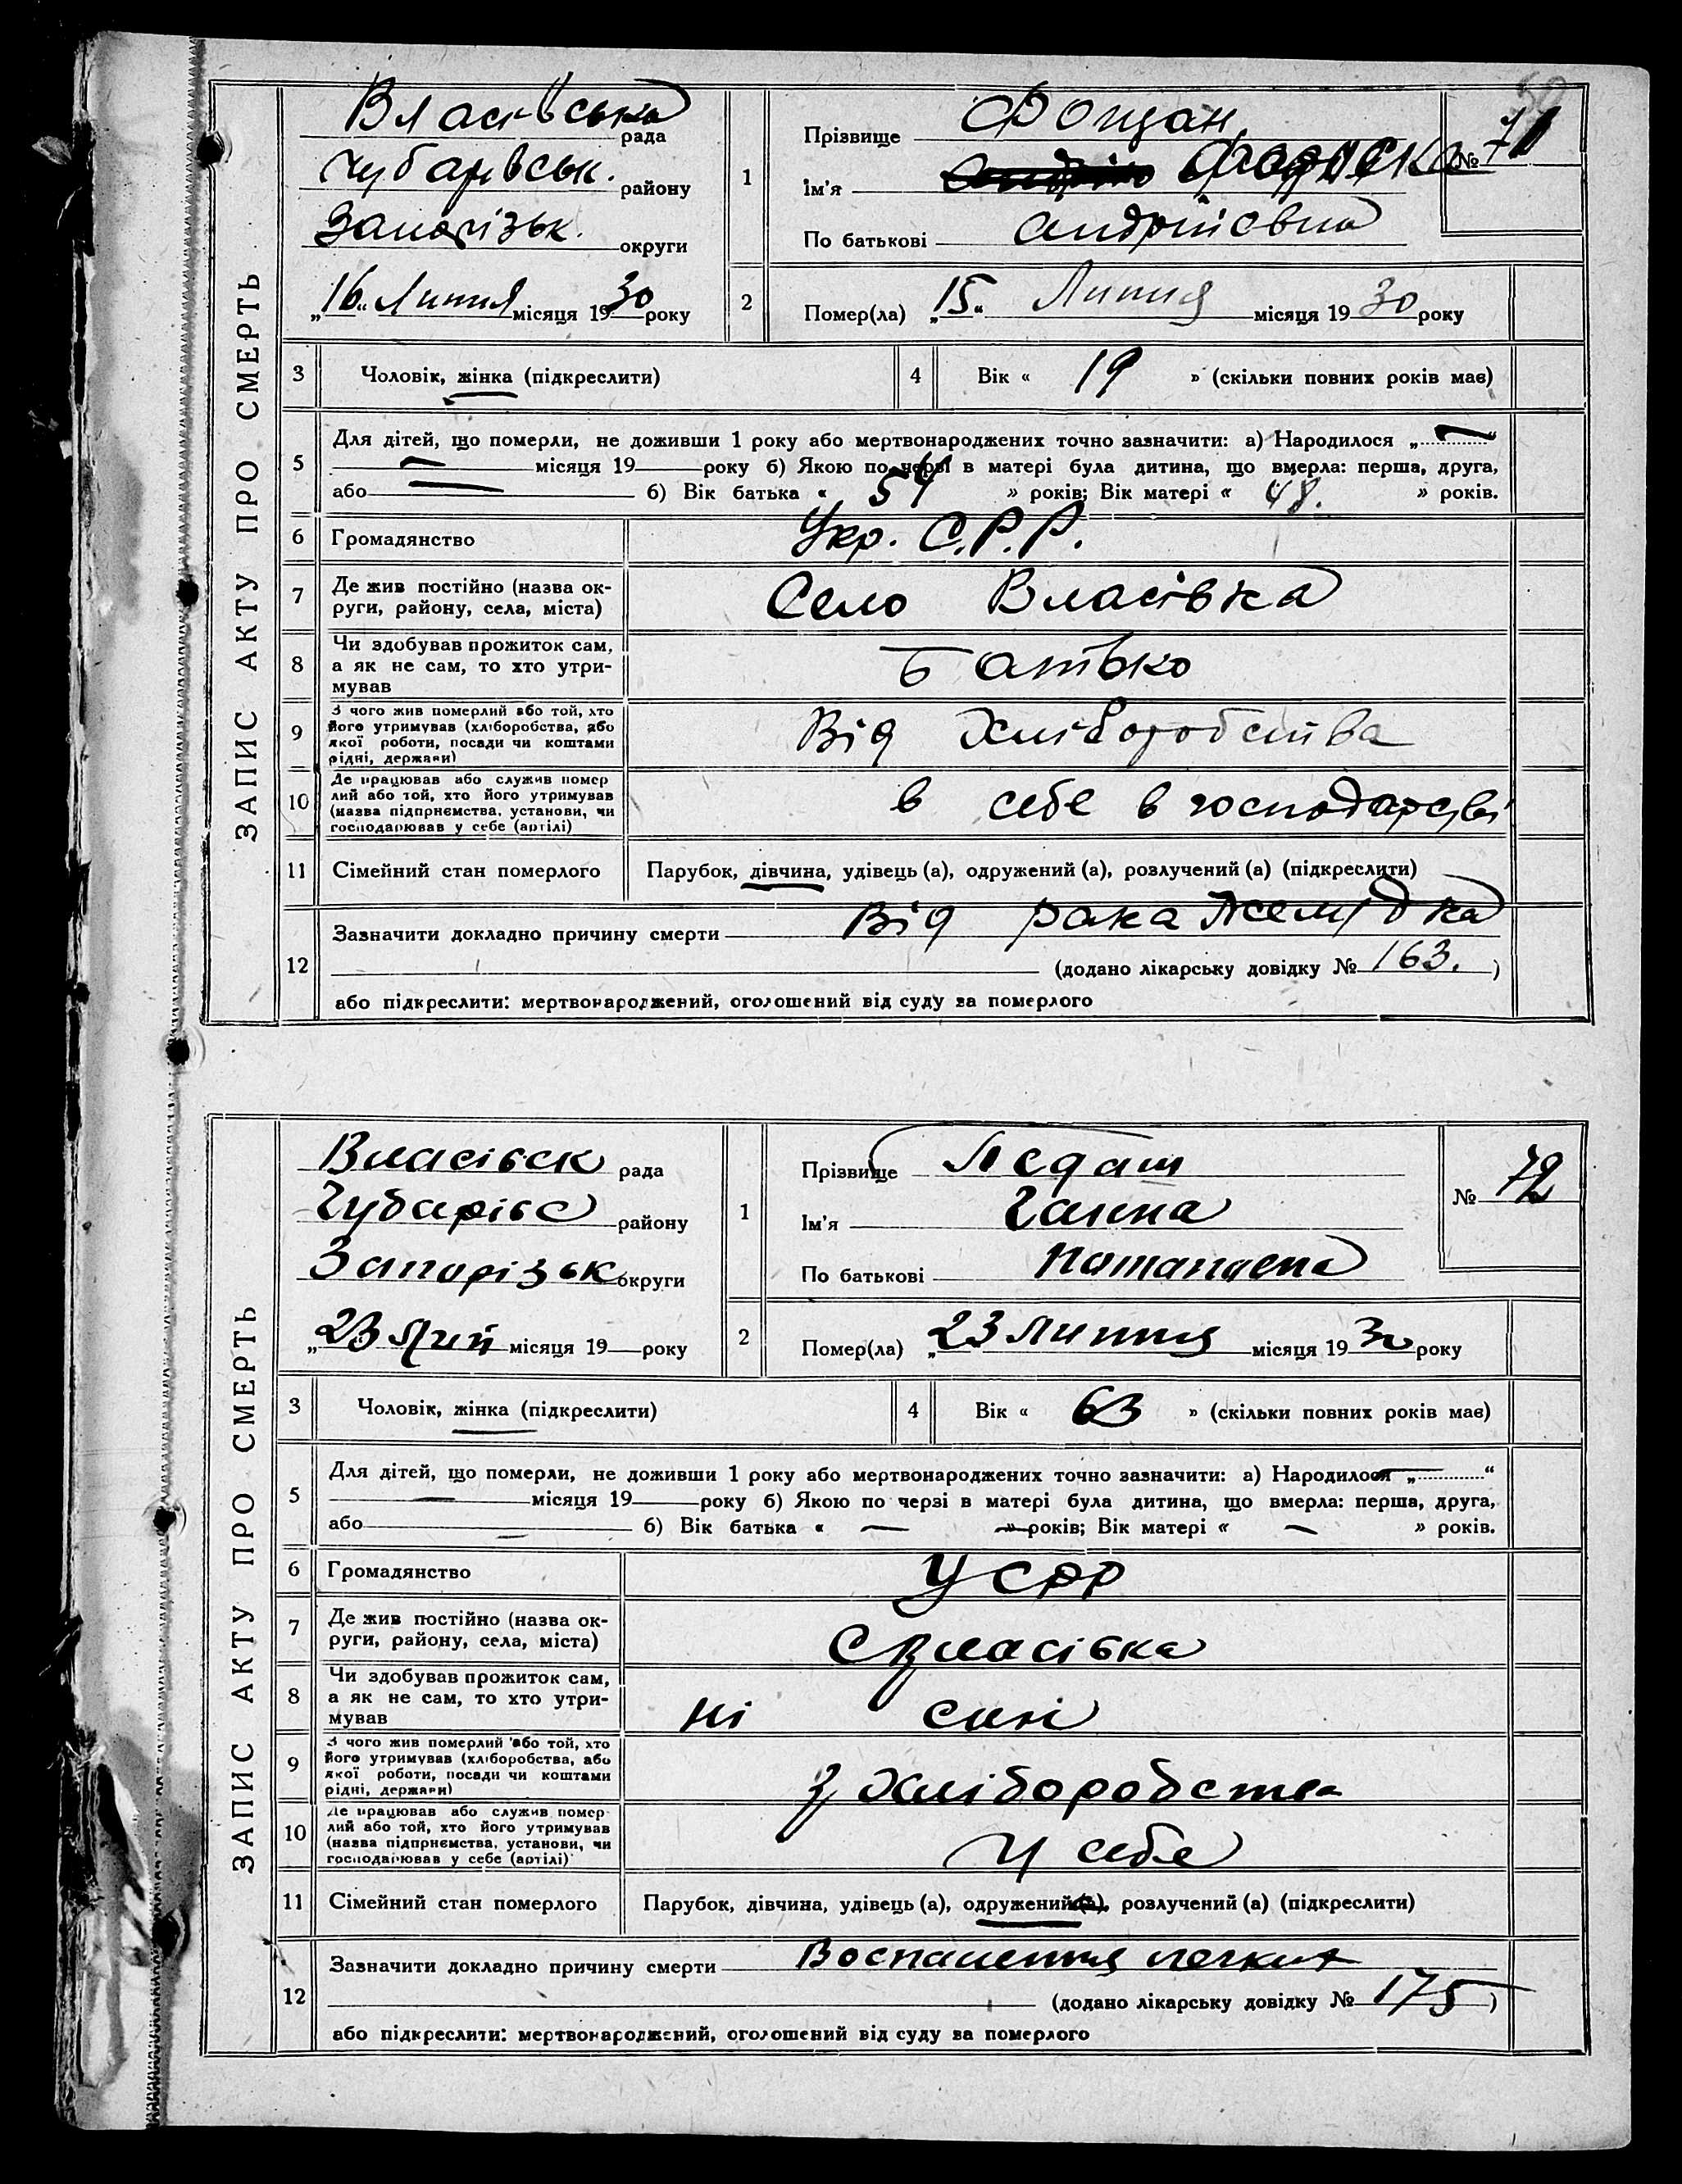 ЗАПИС АКТУ ПРО СМЕРТЬ
Власівська рада
Чубарівськ. району
Запорізьк. округи
„16“ Липня місяця 1930 року
1
Прізвище Фощан
Ім'я
По батькові Андріївна
№ 71
2
Помер(ла) „15“ Липня місяця 1930 року
3 Чоловік, жінка (підкреслити)
4 Вік « 19 » (скільки повних років має)
5
Для дітей, що померли, не доживши 1 року або мертвонароджених точно зазначити: а) Народилося „ — “
— місяця 19 року б) Якою по черзі в матері була дитина, що вмерла: перша, друга,
або — б) Вік батька « 54 » років; Вік матері « 48. » років.
6 Громадянство Укр. С.Р.Р.
7 Де жив постійно (назва округи, району, села, міста) Село Власівка
8 Чи здобував прожиток сам, а як не сам, то хто утримував Батько
9 З чого жив померлий або той, хто його утримував (хліборобства, або якої роботи, посади чи коштами рідні, держави) Від Хліборобства
10 Де працював або служив померлий або той, хто його утримував (назва підприємства, установи, чи господарював у себе (артілі) в себе в господарстві
11 Сімейний стан померлого Парубок, дівчина, удівець (а), одружений (а), розлучений (а) (підкреслити)
12
Зазначити докладно причину смерти Від рака желудка
(додано лікарську довідку № 163. )
або підкреслити: мертвонароджений, оголошений від суду за померлого
ЗАПИС АКТУ ПРО СМЕРТЬ
Власівск рада
Чубарівс району
Запорізьк округи
„23 Лип місяця 19 року
1
Прізвище
Ім'я Ганна
По батькові
№ 72
2
Помер(ла) „23 Липня місяця 1930 року
3 Чоловік, жінка (підкреслити)
4 Вік « 63 » (скільки повних років має)
5
Для дітей, що померли, не доживши 1 року або мертвонароджених точно зазначити: а) Народилося „ — “
— місяця 19 року б) Якою по черзі в матері була дитина, що вмерла: перша, друга,
або — б) Вік батька « — » років; Вік матері « — » років.
6 Громадянство УСРР
7 Де жив постійно (назва округи, району, села, міста) С Власівка
8 Чи здобував прожиток сам, а як не сам, то хто утримував ні син
9 З чого жив померлий або той, хто його утримував (хліборобства, або якої роботи, посади чи коштами рідні, держави) З хліборобства
10 Де працював або служив померлий або той, хто його утримував (назва підприємства, установи, чи господарював у себе (артілі) У себе
11 Сімейний стан померлого Парубок, дівчина, удівець (а), одружений (а), розлучений (а) (підкреслити)
12
Зазначити докладно причину смерти Воспаления легких
(додано лікарську довідку № 175 )
або підкреслити: мертвонароджений, оголошений від суду за померлого